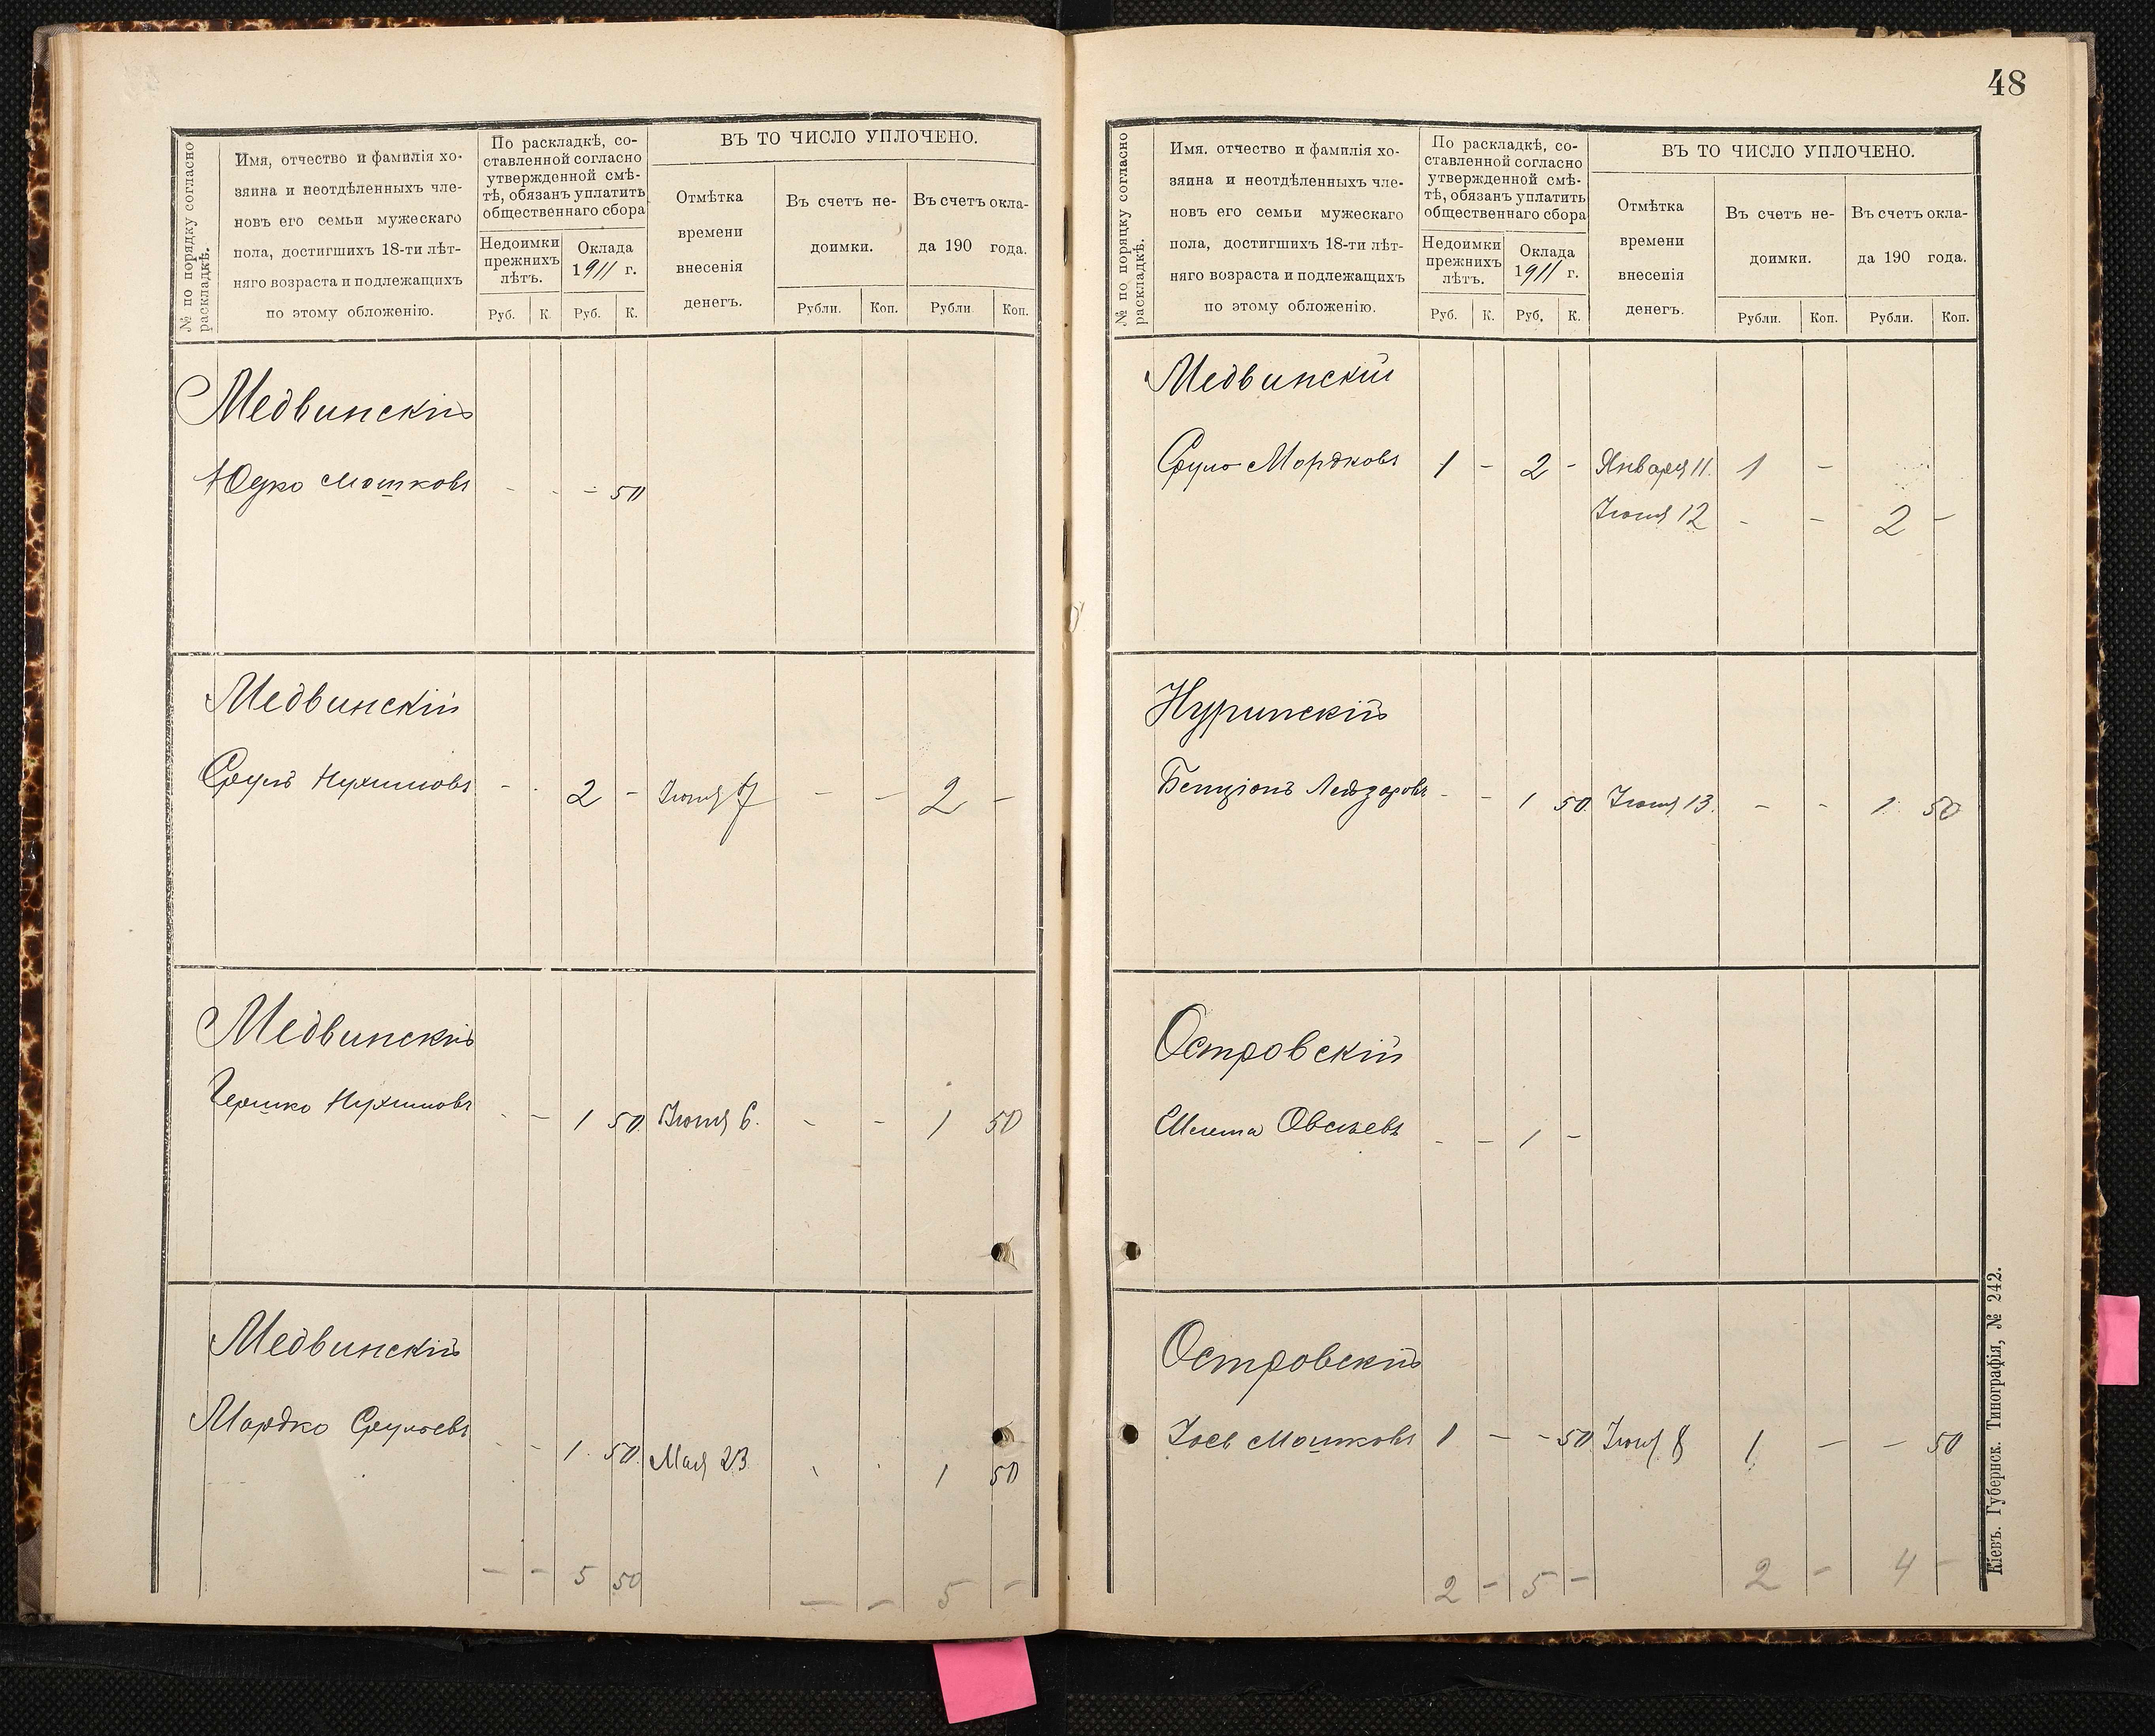 № по порядку согласно
раскладкѣ.
Имя, отчество и фамилія хо-
зяина и неотдѣленныхъ чле-
новъ его семьи мужескаго
пола, достигшихъ 18-ти лѣт-
няго возраста и подлежащихъ
по этому обложенію.
По раскладкѣ, со-
ставленной согласно
утвержденной смѣ-
тѣ, обязанъ уплатить
общественнаго сбора
Недоимки
прежнихъ
лѣтъ.
Оклада
1911 г.
Руб. К. Руб. К.
ВЪ ТО ЧИСЛО УПЛОЧЕНО.
Отмѣтка
времени
внесенія
денегъ.
Въ счетъ не-
доимки.
Въ счетъ окла-
да 190 года.
Рубли. Коп. Рубли Коп.
Медвинскій
Юдко Мошковъ - - - 50
Медвинскій
Сруль Нухимовъ - - 2 - Іюня 7 - - 2 -
Медвинскій
Гершко Нухимовъ - - 1 50 Іюня 6. - - 1 50
Медвинскій
Мордко Срулевъ - - 1 50 Мая 23 - - 1 50
- - 5 50 - - 5 -
48
№ по порядку согласно
раскладкѣ.
Имя. отчество и фамилія хо-
зяина и неотдѣленныхъ чле-
новъ его семьи мужескаго
пола, достигшихъ 18-ти лѣт-
няго возраста и подлежащихъ
по этому обложенію.
По раскладкѣ, со-
ставленной согласно
утвержденной смѣ-
тѣ, обязанъ уплатить
общественнаго сбора
Недоимки
прежнихъ
лѣтъ.
Оклада
1911 г.
Руб. К. Руб. К.
ВЪ ТО ЧИСЛО УПЛОЧЕНО.
Отмѣтка
времени
внесенія
денегъ.
Въ счетъ не-
доимки.
Въ счетъ окла-
да 190 года.
Рубли. Коп. Рубли. Коп.
Медвинскій
Сруль Мордковъ 1 - 2 - Января 11. 1 -
Іюня 12 - - 2 -
Нуринскій
Бенціонъ Лейзоровъ - - 1 50 Іюня 13. - - 1 50
Островскій
Овсѣевъ - - 1 -
Островскій
Іось Мошковъ 1 - - 50 Іюня 8 1 - - 50
2 - 5 - 2 - 4 -
Кіевъ. Губернск. Типографія, № 242.